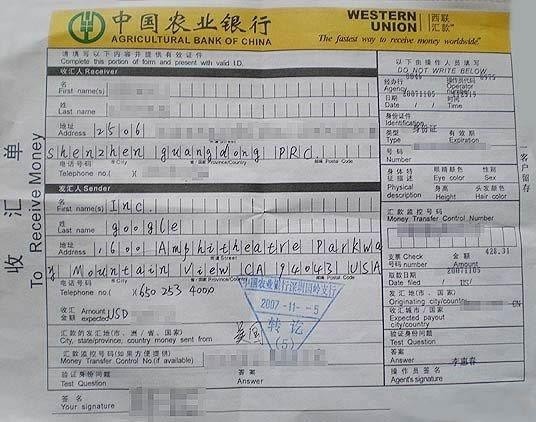 中国农业银行
AGRICULTURAL BANK OF CHINA
WESTERN UNION 西联汇款
The fastest way to receive money worldwide
请填写以下内容并提供有效证件
Complete this portion of form and present with valid I.D.
以下由操作人员填写
DO NOT WRITE BELOW
收汇人 Receiver
名
First name(s)
姓
Last name(s)
地址
Address 2506
shenzhen guangdong PRC
电话号码
Telephone no. ( )
发汇人 Sender
名
First name(s) Inc.
姓
Last name(s) google
地址
Address 1600 Amphitheatre Parkwa
y Mountain View CA 94043 USA
电话号码
Telephone no. ( ) 650 253 4000
收汇 Amount
金额 expected USD
汇款的发出地(市、洲/省、国家) 美国
City, state/province, country money sent from
汇款监控号码(如果方便提供)
Money Transfer Control No.(if available)
验证身份问题 答案
Test Question Answer
签名
Your signature
经办行
Agency
操作员代码
Operator number
日期 20071105 时间
Date / / Time
身份证件
Identification
类型 身份证 有效期
Type Expiration
号码
Number
身体特征描述
Physical description
眼睛颜色 性别
Eye color Sex
身高 头发颜色
Height Hair color
汇款监控号码
Money Transfer Control Number
支票 Check 金额 428.31
号码 number Amount
取款日期 20071105
Date filed / /
发汇地(市、国家)
Originating city/country
收汇城市/国家 CN
Expected payout city/country
验证身份问题
Test Question
答案
Answer 李惠春
操作员签名
Agent's signature
中国农业银行深圳园岭支行
2007-11--5
转讫
(5)
收汇单
To Receive Money
客户留存